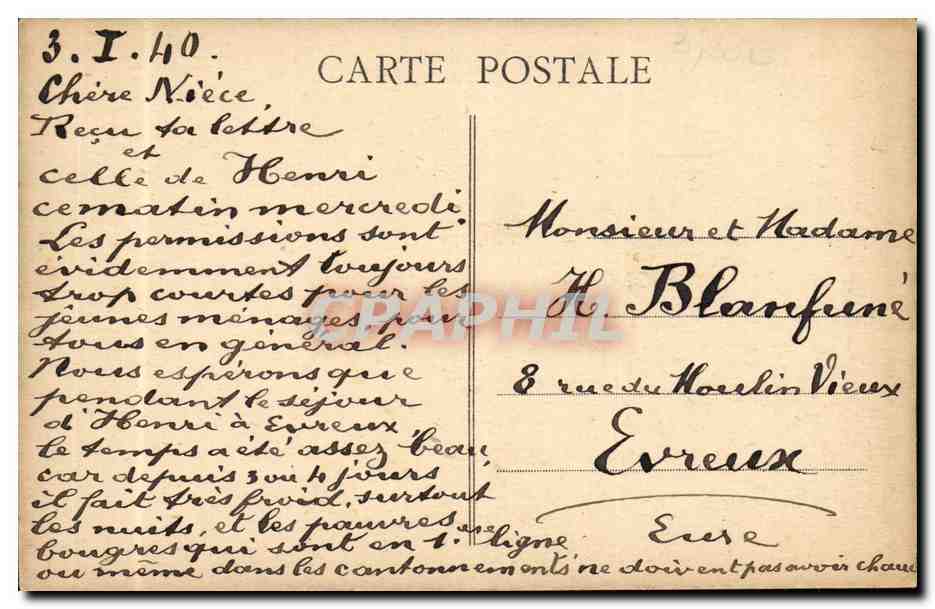 3.I.40.
CARTE POSTALE
Chère Nièce,
Reçu ta lettre
et
celle de Henri
ce matin mercredi.
Les permissions sont
évidemment toujours
trop courtes pour les
jeunes ménages pour
tous en général.
Nous espérons que
pendant le séjour
d'Henri à Evreux,
le temps a été assez beau,
car depuis 3 ou 4 jours
il fait très froid, surtout
les nuits, et les pauvres
bougres qui sont en 1.ère ligne
ou même dans les cantonnements ne doivent pas avoir chaud
Monsieur et Madame
H. Blanfuné
8 rue du Moulin Vieux
Evreux
Eure
EPAPHIL